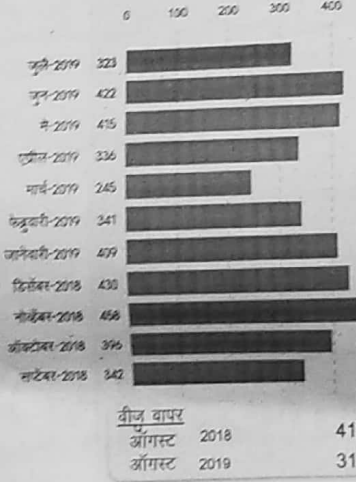 0 100 200 300 400
जुलै-2019 323
जुन-2019 422
मे-2019 415
एप्रील-2019 336
मार्च-2019 245
फेब्रुवारी-2019 341
जानेवारी-2019 409
डिसेंबर-2018 430
नोव्हेंबर-2018 458
ऑक्टोबर-2018 396
सप्टेंबर-2018 342
वीज वापर
ऑगस्ट 2018 41
ऑगस्ट 2019 31